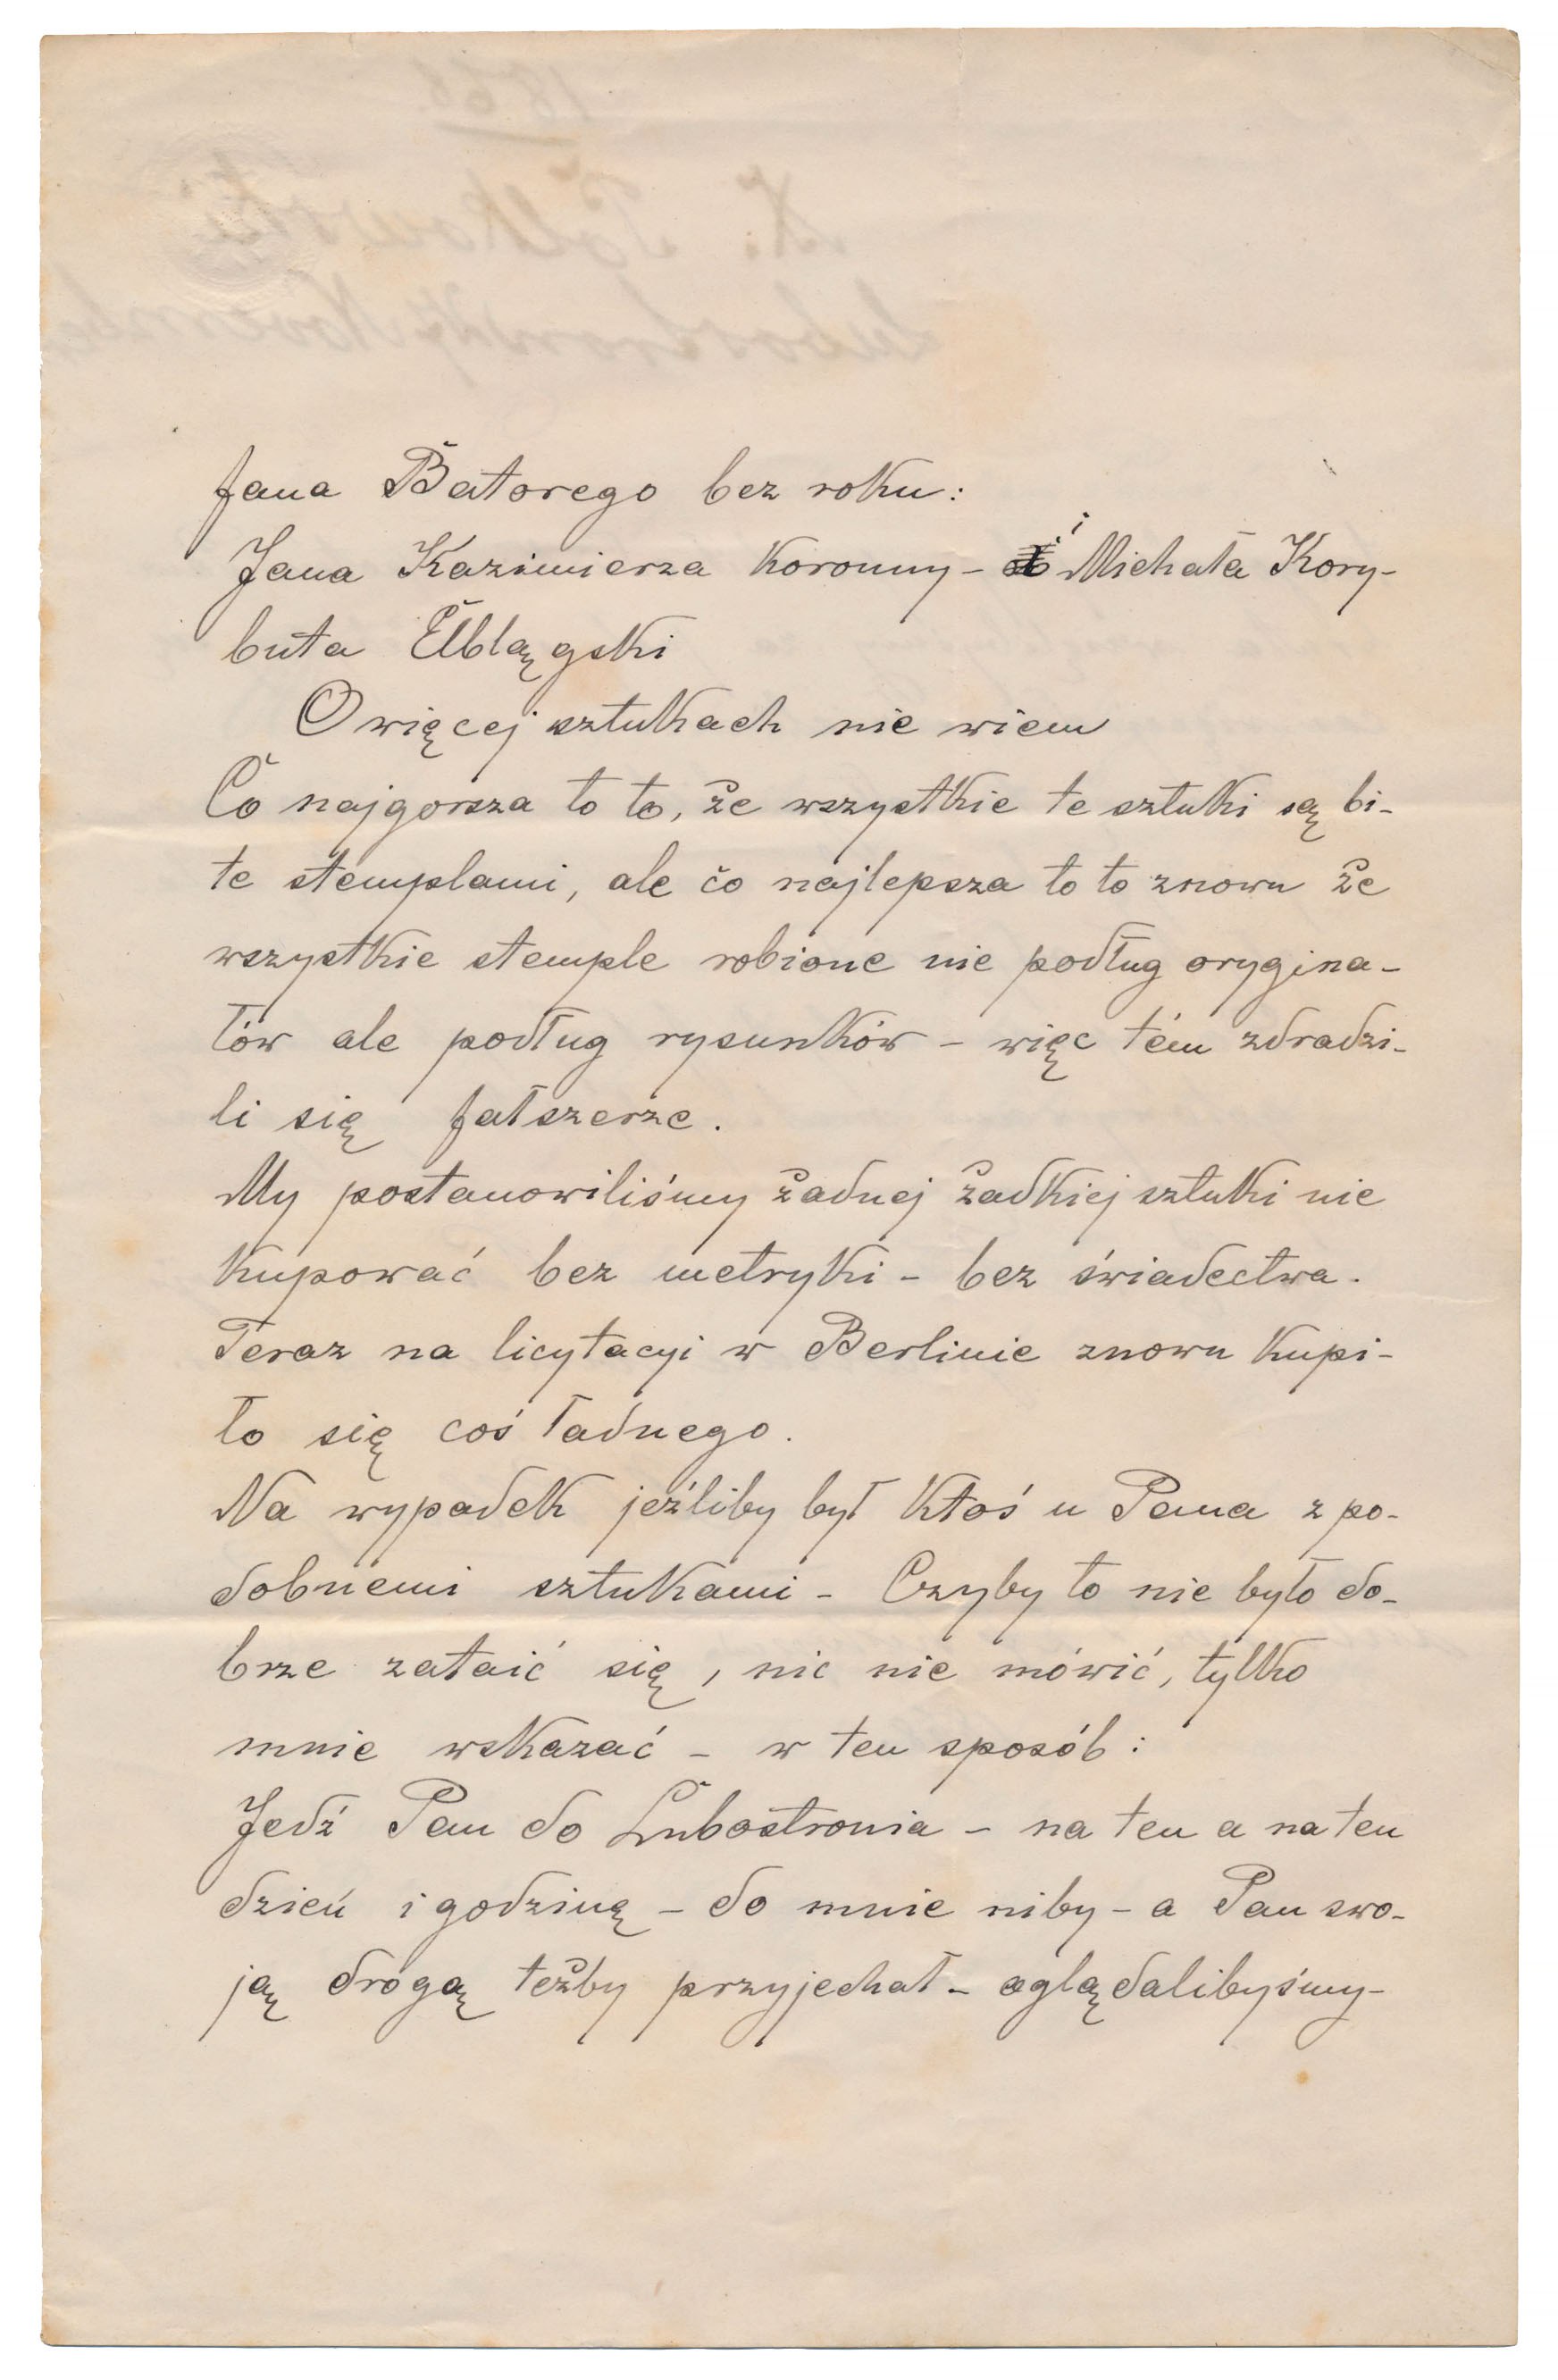 fana Batorego bez roku:
Jana Kazimierza Koronny – i Michała Kory-
buta Elblągski
O więcej sztukach nie wiem
Co najgorsza to to, że wszystkie te sztuki są bi-
te stemplami, ale co najlepsza to to znowu że
wszystkie stemple robione nie podług orygina-
łów ale podług rysunków – więc tém zdradzi-
li się fałszerze.
My postanowiliśmy żadnej żadkiej sztuki nie
kupować bez metryki – bez świadectwa.
Teraz na licytacyi w Berlinie znowu kupi-
ło się coś ładnego.
Na wypadek jeźliby był ktoś u Pana z po-
dobnemi sztukami – Czyby to nie było do-
brze zataić się, nic nie mówić, tylko
mnie wskazać – w ten sposób:
Jedź Pan do Lubostronia – na ten a na ten
dzień i godzinę – do mnie niby – a Pan swo-
ją drogą teżby przyjechał – oglądalibyśmy –